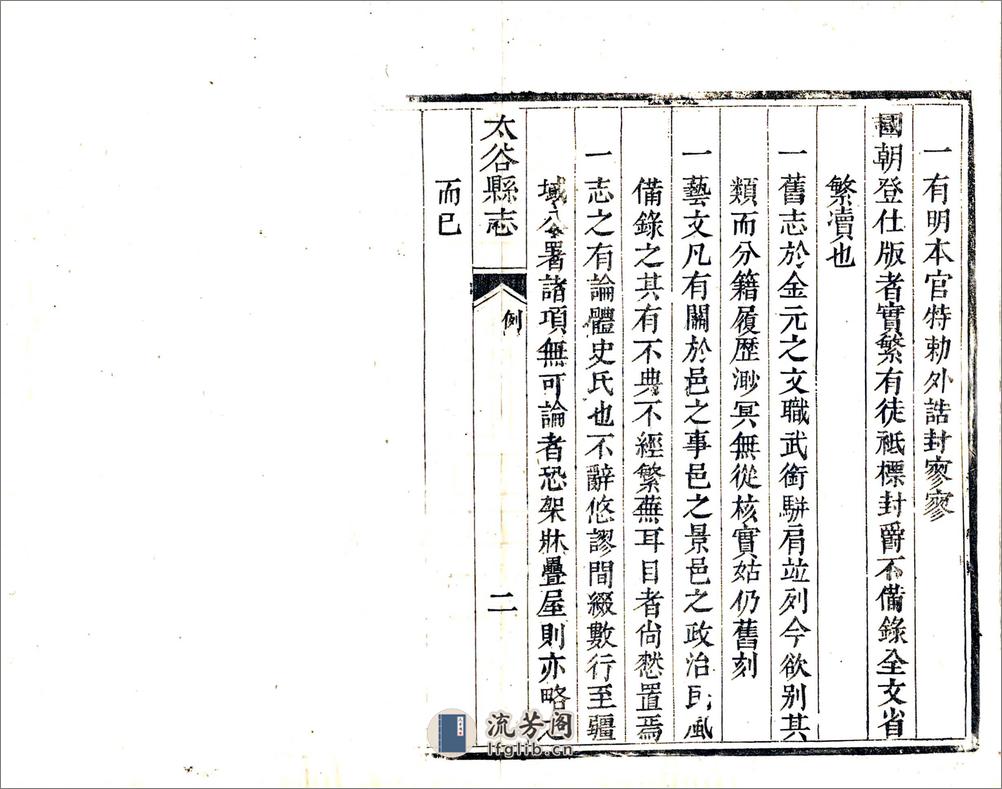 一有明本官特勅外誥封寥寥
國朝登仕版者實繁有徒祗標封爵不備錄全文省
繁瀆也
一舊志於金元之文職武銜駢肩並列今欲別其
類而分籍履歷渺冥無從核實姑仍舊刻
一藝文凡有關於邑之事邑之景邑之政治民風
備錄之其有不典不經繁蕪耳目者尚憗置焉
一志之有論體史氏也不辭悠謬間綴數行至疆
域公署諸項無可論者恐架牀疊屋則亦略之
太谷縣志
例
二
而已
流芳阁
lfglib.cn